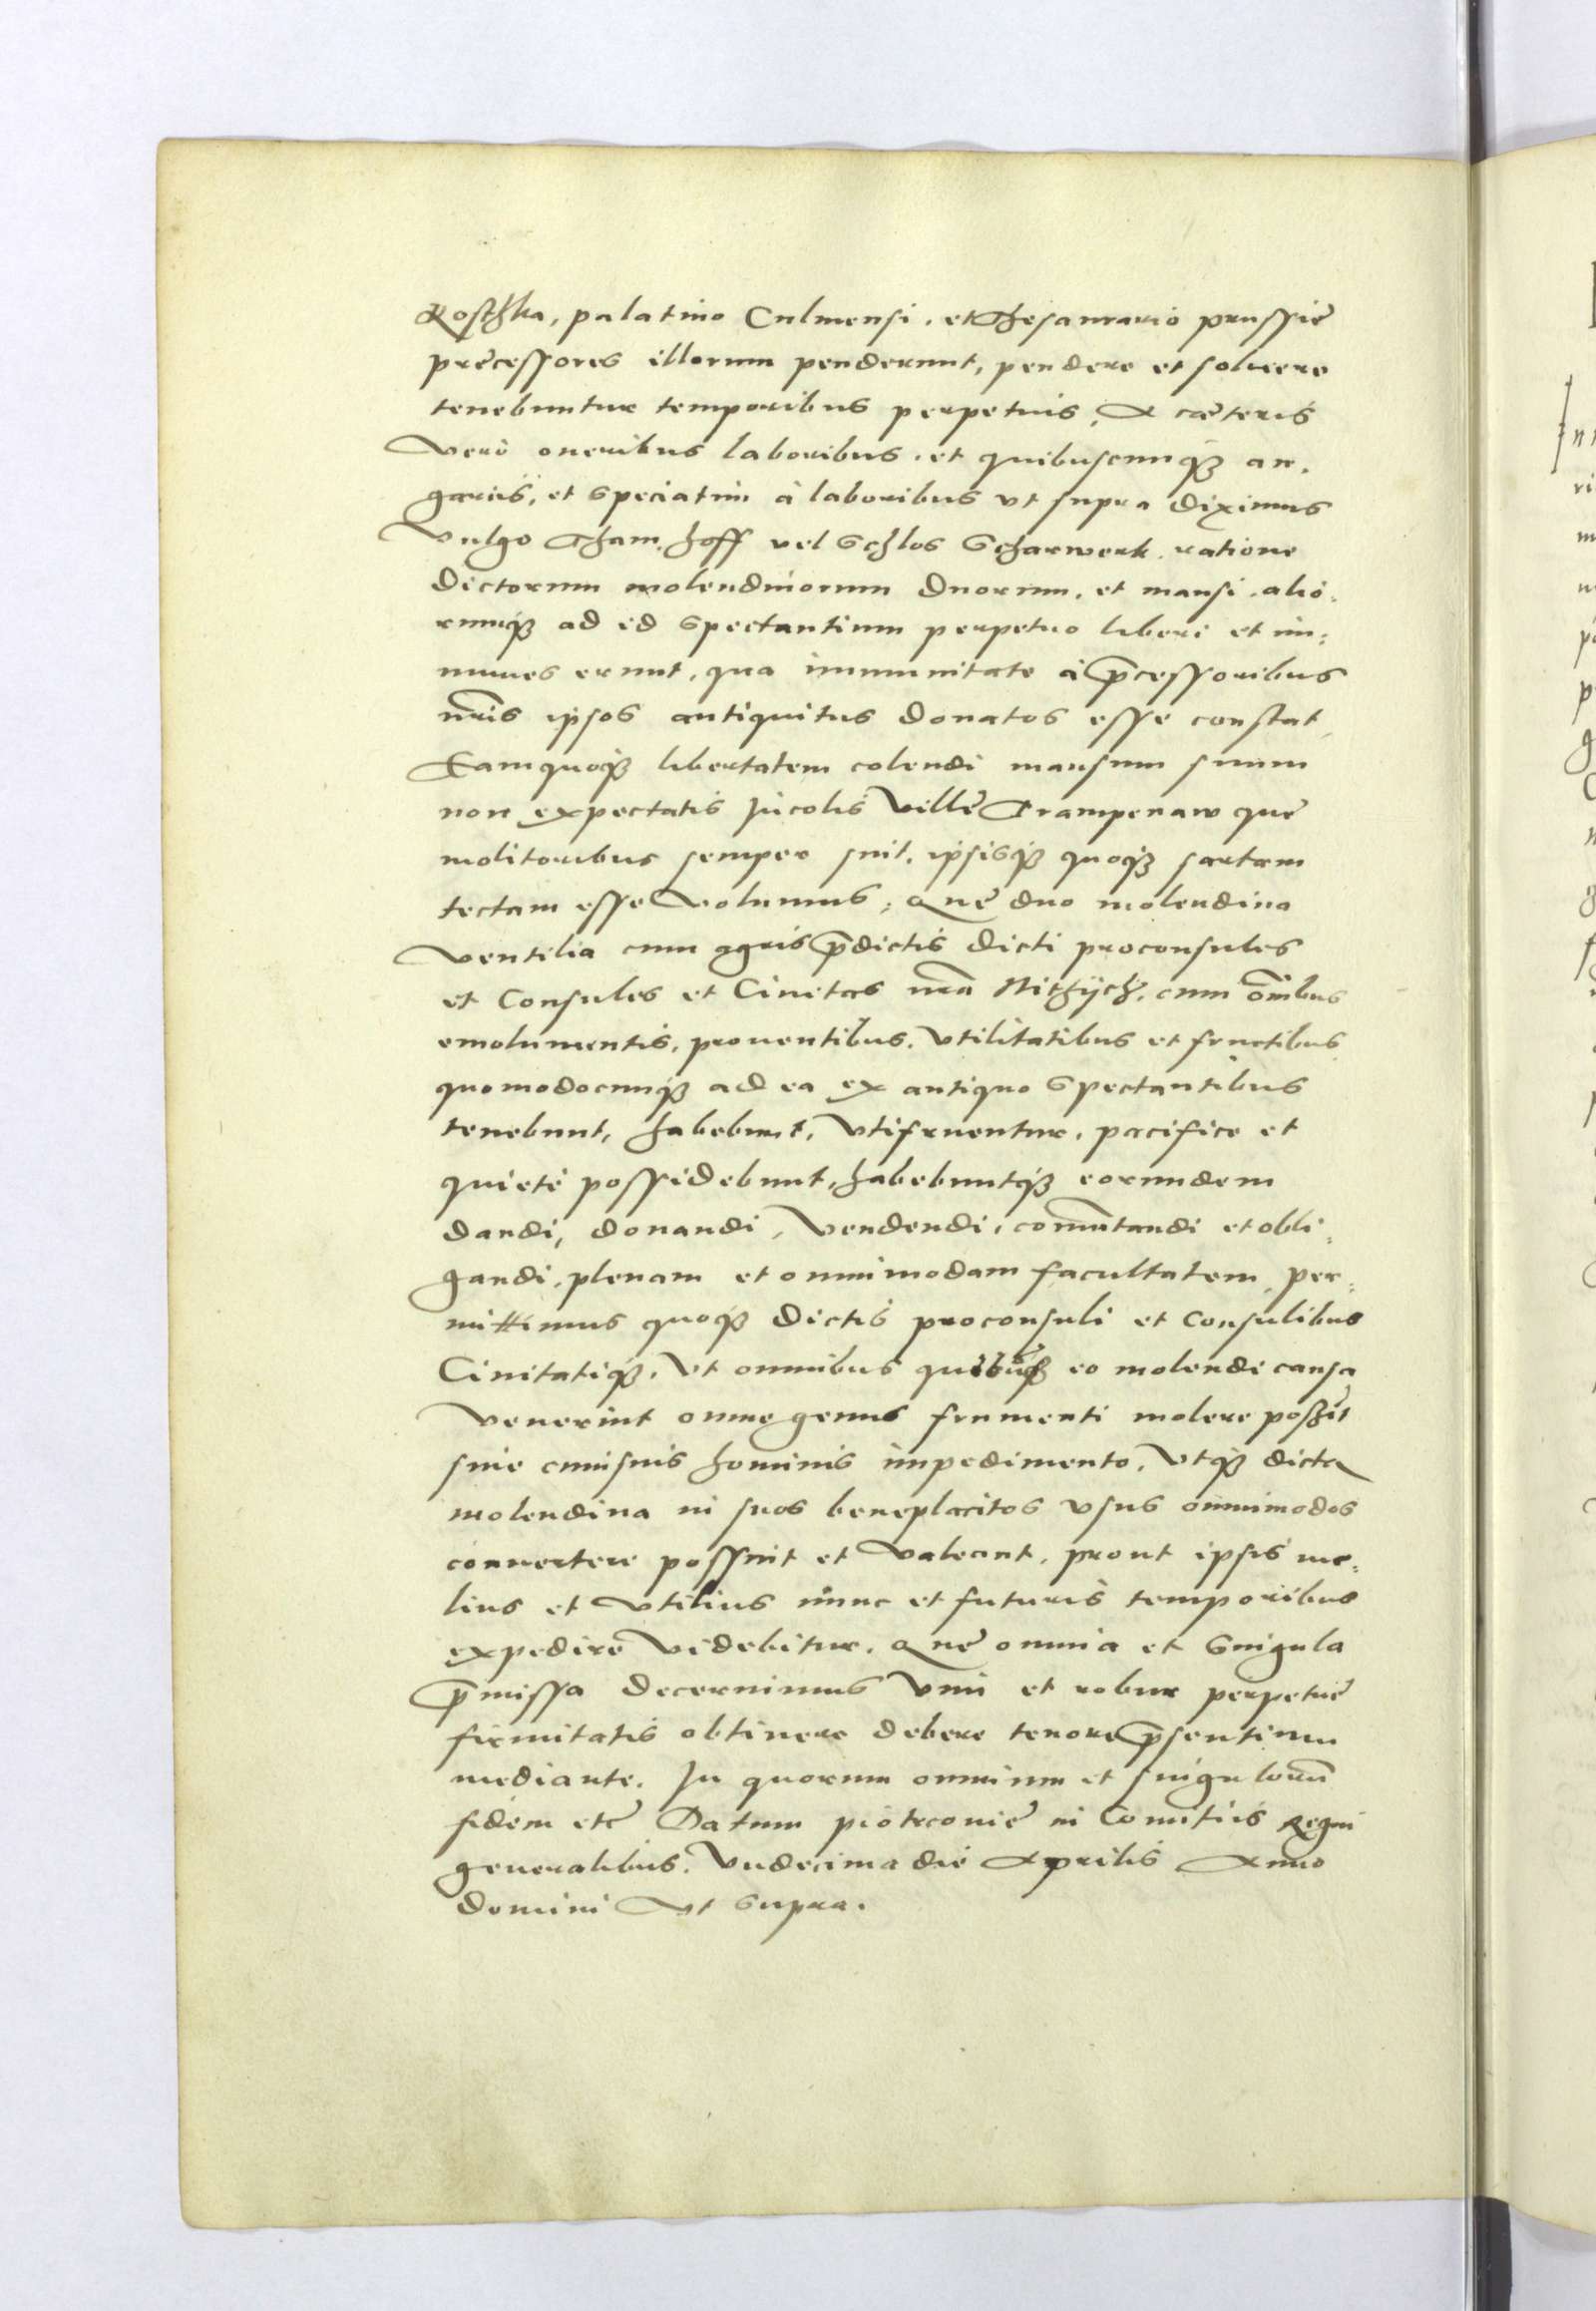 Kostzka, palatino Culmensi, et Thesaurario prussie
precessores illorum penderunt, pendere et soluere
tenebuntur temporibus perpetuis, A cæteris
Vero oneribus laboribus, et quibuscunq3 an,
garijs, et speciatim à laboribus vt supra diximus
Vulgo Tham, hoff vel Schlos Scharwerk, ratione
dictorum molendinorum duorum, et mansi, alio,
rumq3 ad id spectantium perpetuo liberi et im,
munes erunt, qua immunitate à p̄cessoribus
nr̄is ipsos antiquitus donatos esse constat,
Eamquoq3 libertatem colendi mansum suum
non expectatis Incolis Ville Trampenaw que
molitoribus semper fuit, ipsisq3 quoq3 sartam
tectam esse volumus, Que duo molendina
Ventilia cum agris p̄dictis dicti proconsules
et Consules et Ciuitas nr̄a Nithÿch, cum oīnibus
emolumentis, prouentibus, Vtilitatibus et fructibus
quomodocunq3 ad ea ex antiquo Spectantibus
tenebunt, habebunt, Vtifruentur, pacifice et
quiete possidebunt, habebuntq3 eorundem
dandi, donandi, Vendendi, com̄utandi et obli,
gandi, plenam et omnimodam facultatem, per,
mittimus quoq3 dictis proconsuli et Consulibus
Ciuitatiq3, Vt omnibus quibusq3 eo molendi causa
Venerint omne genus frumenti molere possit
sine cuiusuis hominis impedimento, Vtq3 dicta
molendina in suos beneplacitos vsus omnimodos
conuertere possint et Valeant, prout ipsis me,
lius et Vtilius nunc et futuris temporibus
expedire Videbitur, Que omnia et Singula
p̄missa decernimus Vim et robur perpetue
firmitatis obtinere debere tenore p̄sentium
mediante, In quorum omnium et singulorū
fidem etc̄ Datum piotrcouie in Comitijs Regni
generalibus, Vndecima die Aprilis Anno
domini Vt Supra.